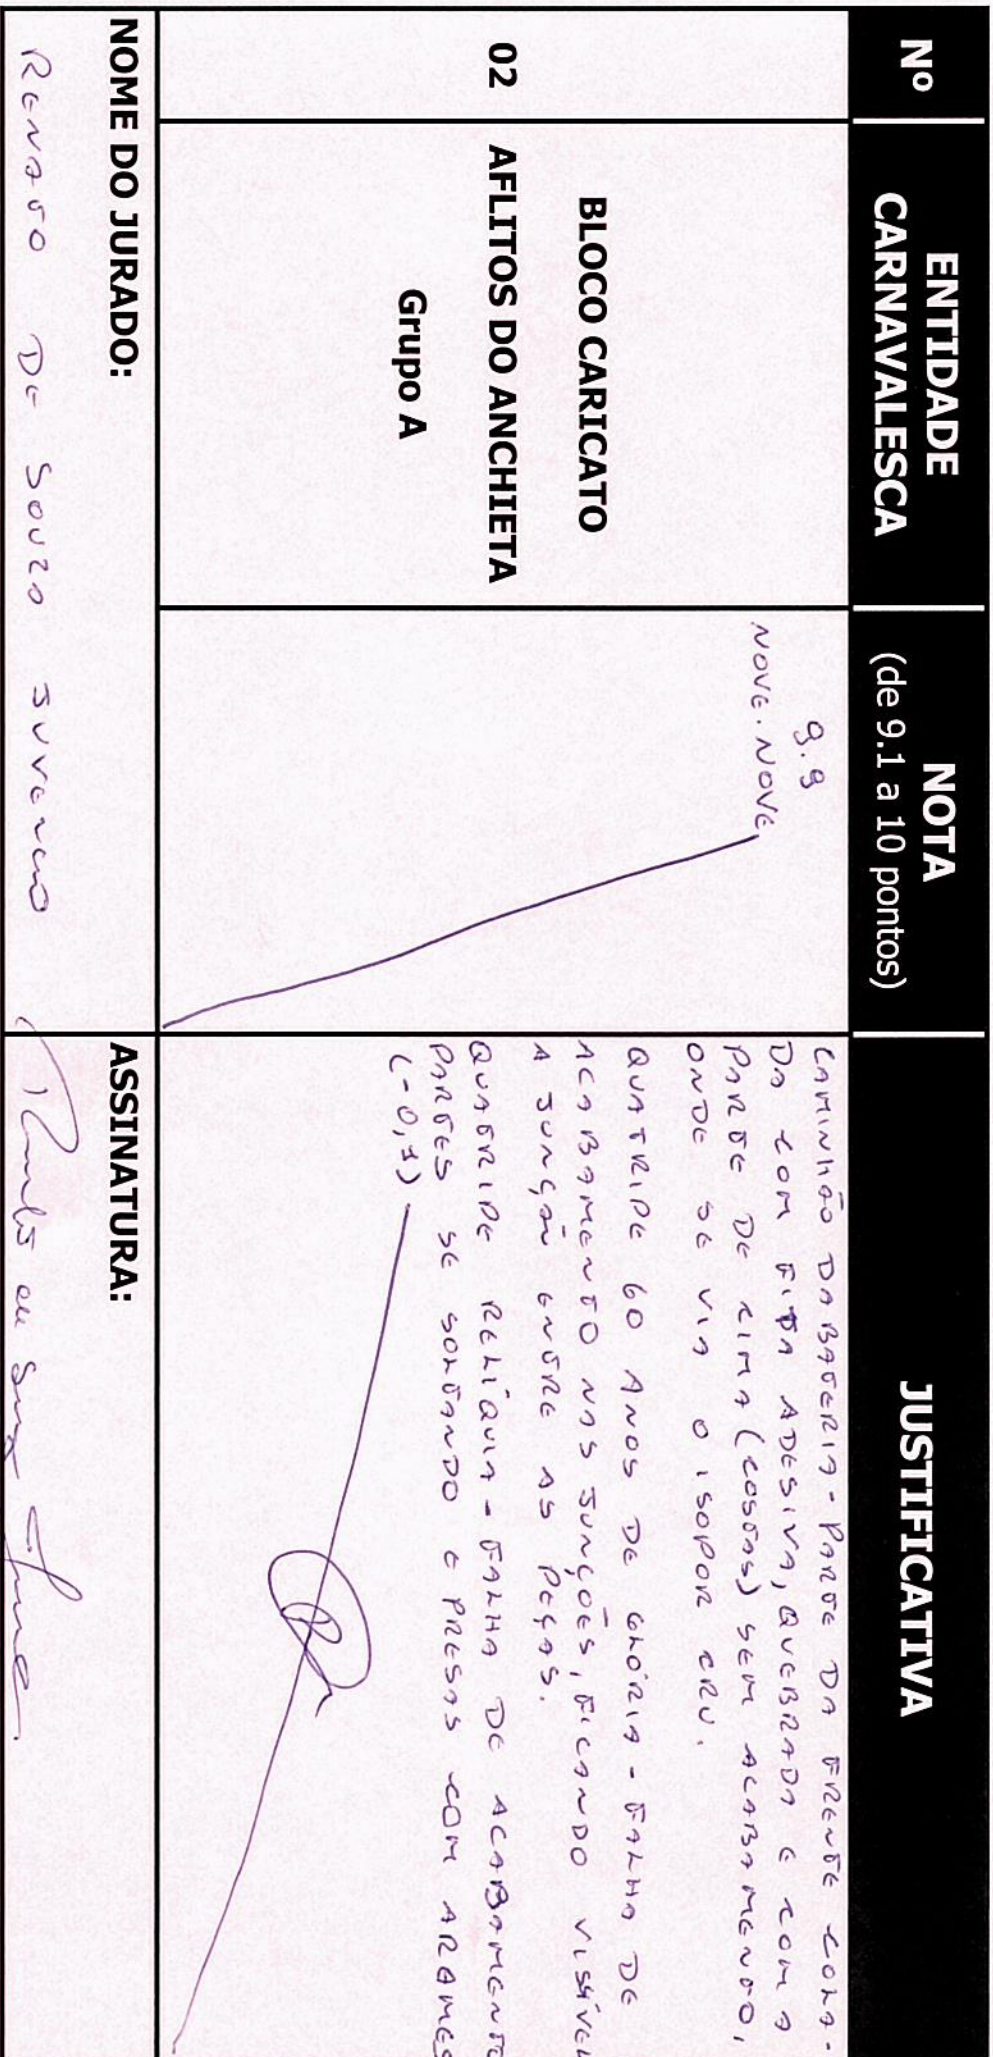 Nº
ENTIDADE
CARNAVALESCA
NOTA
(de 9.1 a 10 pontos)
JUSTIFICATIVA
02
BLOCO CARICATO
AFLITOS DO ANCHIETA
Grupo A
9.9
NOVE. NOVE
CAMINHÃO DA BATERIA - PARTE DA FRENTE COLA-
DA COM FITA ADESIVA, QUEBRADA E COM A
PARTE DE CIMA (COSTAS) SEM ACABAMENTO,
ONDE SE VIA O ISOPOR CRU.
QUATRIPE 60 ANOS DE GLÓRIA - FALHA DE
ACABAMENTO NAS JUNÇÕES, FICANDO VISSÍVEL
A JUNÇÃO ENTRE AS PEÇAS.
QUATRIPE RELÍQUIA - FALHA DE ACABAMENTO
PARTES SE SOLTANDO E PRESAS COM ARAMES
(-0,1)
NOME DO JURADO:
RENATO DE SOUZA JUVENCIO
ASSINATURA: